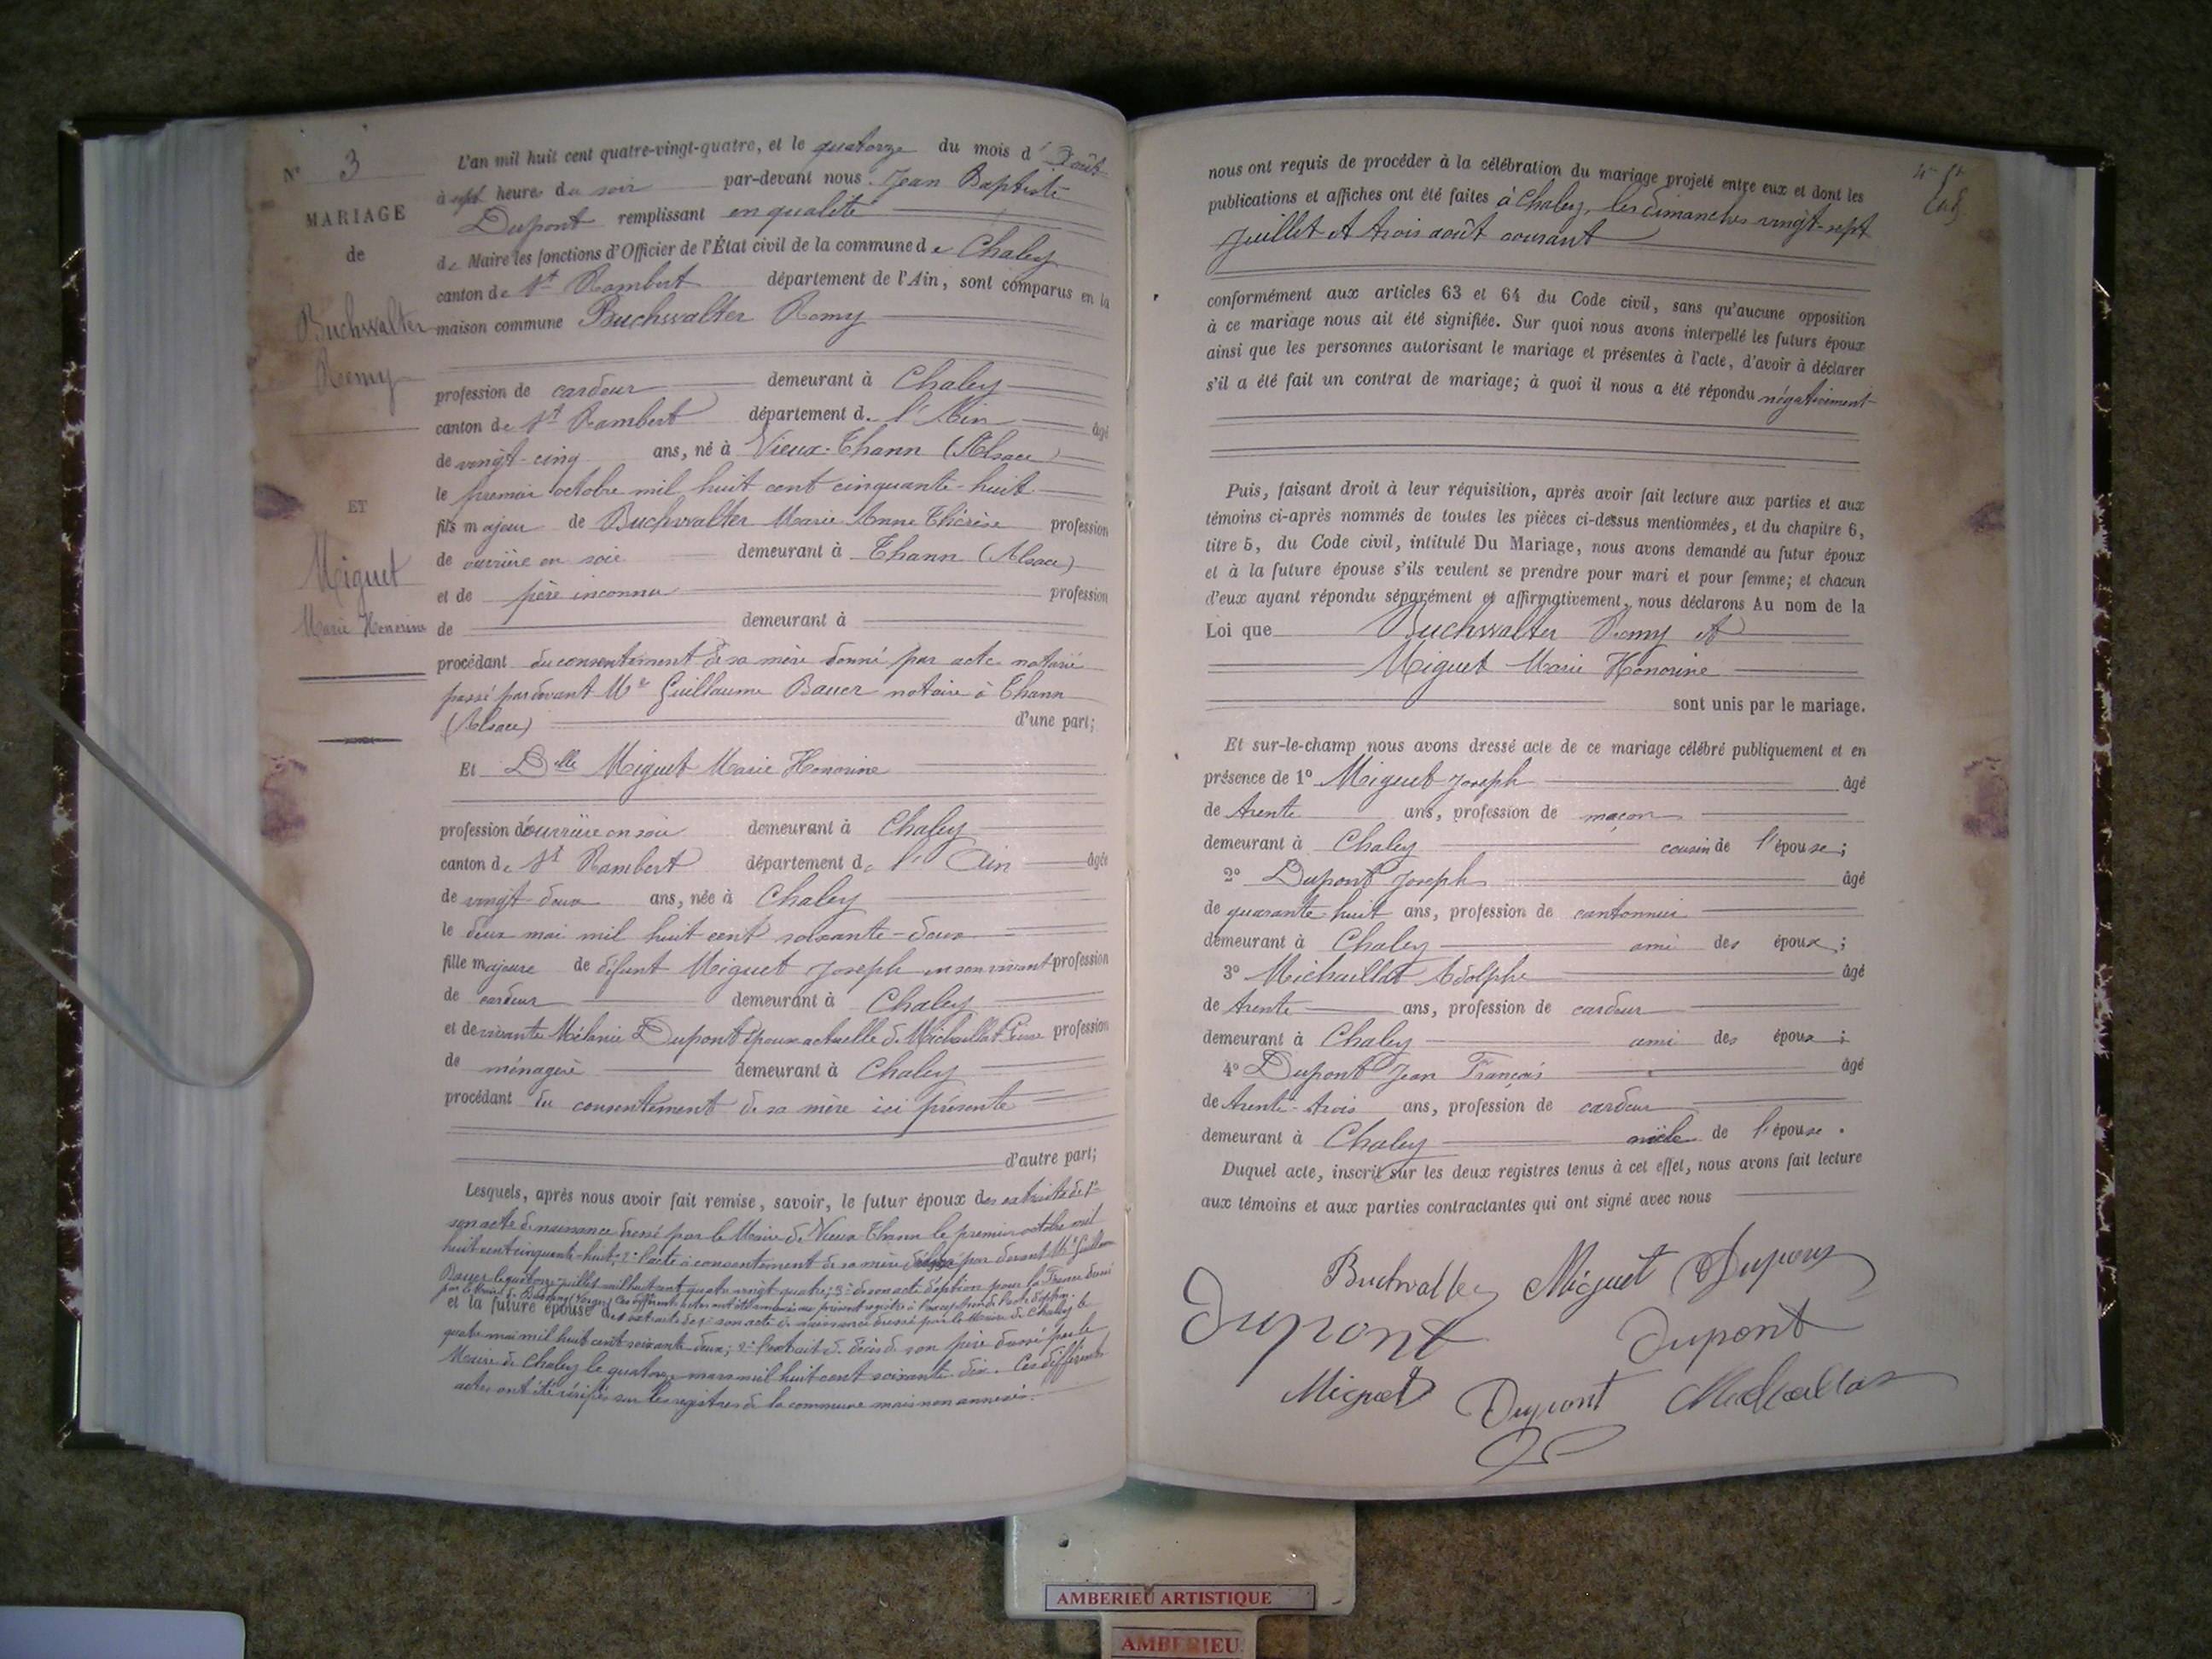 N° 3
MARIAGE
de
Buchwalter
Remy
ET
Miguet
Marie Honorine
L'an mil huit cent quatre-vingt-quatre, et le quatorze du mois d'Août
à sept heures du soir par-devant nous Jean Baptiste
Dupont remplissant en qualité
de Maire les fonctions d'Officier de l'État civil de la commune de Chaley
canton de St Rambert département de l'Ain, sont comparus en la
maison commune Buchwalter Remy
profession de cardeur demeurant à Chaley
canton de St Rambert département de l'Ain âgé
de vingt-cinq ans, né à Vieux-Thann (Alsace)
le premier octobre mil huit cent cinquante-huit
fils majeur de Buchwalter Marie Anne Thérèse profession
de ouvrière en soie demeurant à Thann (Alsace)
et de père inconnu profession
de demeurant à
procédant du consentement de sa mère donné par acte notarié
passé par devant Me Guillaume Bauer notaire à Thann
(Alsace) d'une part;
Et Delle Miguet Marie Honorine
profession d'ouvrière en soie demeurant à Chaley
canton de St Rambert département de l'Ain âgée
de vingt deux ans, née à Chaley
le deux mai mil huit cent soixante-deux
fille majeure de défunt Miguet Joseph en son vivant profession
de cardeur demeurant à Chaley
et de vivante Mélanie Dupont épouse actuelle de Michaillat profession
de ménagère demeurant à Chaley
procédant du consentement de sa mère ici présente
d'autre part;
Lesquels, après nous avoir fait remise, savoir, le futur époux des extraits de 1°
son acte de naissance dressé par le Maire de Vieux Thann le premier octobre mil
huit cent cinquante-huit; 2° l'acte de consentement de sa mère par devant Me Guillaume
Bauer le quatorze juillet mil huit cent quatre vingt quatre; 3° de son acte d'option pour la France
par le Maire de
et la future épouse des extraits de 1° son acte de naissance dressé par le Maire de Chaley le
quatre mai mil huit cent soixante deux; 2° l'extrait de décès de son père dressé par le
Maire de Chaley le quatorze mars mil huit cent soixante dix. Ces différents
actes ont été vérifiés sur les registres de la commune mais non annexés.
nous ont requis de procéder à la célébration du mariage projeté entre eux et dont les
publications et affiches ont été faites à Chaley, les dimanches vingt-sept
juillet et trois août courant
conformément aux articles 63 et 64 du Code civil, sans qu'aucune opposition
à ce mariage nous ait été signifiée. Sur quoi nous avons interpellé les futurs époux
ainsi que les personnes autorisant le mariage et présentes à l'acte, d'avoir à déclarer
s'il a été fait un contrat de mariage; à quoi il nous a été répondu négativement
Puis, faisant droit à leur réquisition, après avoir fait lecture aux parties et aux
témoins ci-après nommés de toutes les pièces ci-dessus mentionnées, et du chapitre 6,
titre 5, du Code civil, intitulé Du Mariage, nous avons demandé au futur époux
et à la future épouse s'ils veulent se prendre pour mari et pour femme; et chacun
d'eux ayant répondu séparément et affirmativement, nous déclarons Au nom de la
Loi que Buchwalter Remy et
Miguet Marie Honorine
sont unis par le mariage.
Et sur-le-champ nous avons dressé acte de ce mariage célébré publiquement et en
présence de 1° Miguet Joseph âgé
de trente ans, profession de maçon
demeurant à Chaley cousin de l'épouse;
2° Dupont Joseph âgé
de quarante huit ans, profession de cantonnier
demeurant à Chaley ami des époux;
3° Michaillat Adolphe âgé
de trente ans, profession de cardeur
demeurant à Chaley ami des époux;
4° Dupont Jean François âgé
de trente-trois ans, profession de cardeur
demeurant à Chaley oncle de l'épouse.
Duquel acte, inscrit sur les deux registres tenus à cet effet, nous avons fait lecture
aux témoins et aux parties contractantes qui ont signé avec nous
Buchwalter Miguet Dupont
Dupont Dupont
Miguet Dupont Michaillat
AMBERIEU ARTISTIQUE
AMBERIEU